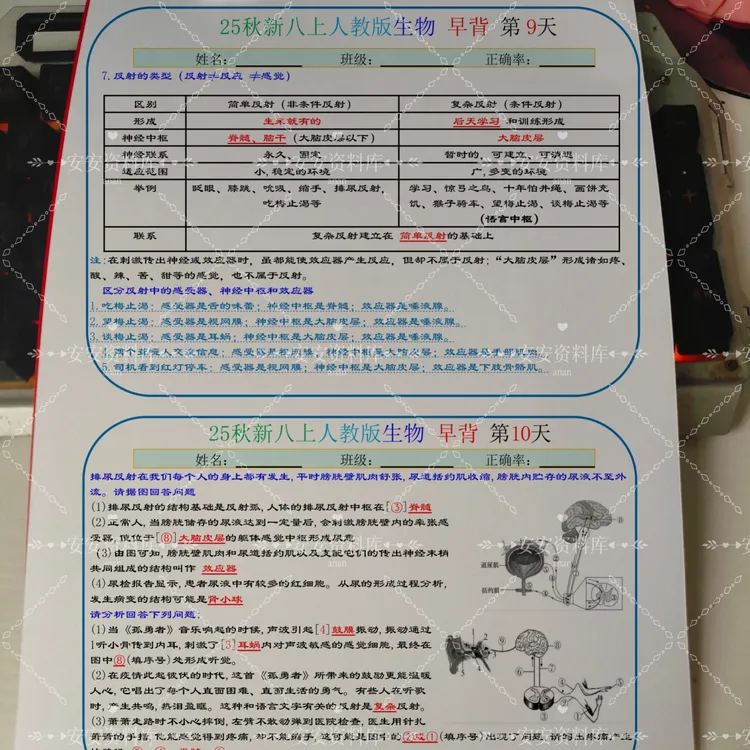 25秋新八上人教版生物 早背 第9天
姓名: 班级: 正确率:
7. 反射的类型(反射≠反应 ≠感觉)
区别 简单反射(非条件反射) 复杂反射(条件反射)
形成 生来就有的 后天学习 和训练形成
神经中枢 脊髓、脑干(大脑皮层以下) 大脑皮层
神经联系 永久、固定 暂时的、可建立、可消退
适应范围 小,稳定的环境 广,多变的环境
举例 眨眼、膝跳、吮吸、缩手、排尿反射, 学习、惊弓之鸟、十年怕井绳、画饼充
吃梅止渴等 饥、猴子骑车、望梅止渴、谈梅止渴等
(语言中枢)
联系 复杂反射建立在 简单反射的基础上
注:在刺激传出神经或效应器时,虽都能使效应器产生反应,但却不属于反射;“大脑皮层”形成诸如疼、
酸、辣、苦、甜等的感觉,也不属于反射。
区分反射中的感受器、神经中枢和效应器
1.吃梅止渴:感受器是舌的味蕾;神经中枢是脊髓;效应器是唾液腺。
2.望梅止渴:感受器是视网膜;神经中枢是大脑皮层;效应器是唾液腺。
3.谈梅止渴:感受器是耳蜗;神经中枢是大脑皮层;效应器是唾液腺。
5.司机看到红灯停车:感受器是视网膜;神经中枢是大脑皮层;效应器是下肢骨骼肌。
安安资料库
anan
25秋新八上人教版生物 早背 第10天
姓名: 班级: 正确率:
排尿反射在我们每个人的身上都有发生,平时膀胱壁肌肉舒张,尿道括约肌收缩,膀胱内贮存的尿液不至外
流。请据图回答问题
(1)排尿反射的结构基础是反射弧,人体的排尿反射中枢在[③]脊髓
(2)正常人,当膀胱储存的尿液达到一定量后,会刺激膀胱壁内的牵张感
受器,能位于[⑧]大脑皮层的躯体感觉中枢形成尿意
(3)由图可知,膀胱壁肌肉和尿道括约肌以及支配它们的传出神经末梢
共同组成的结构叫作 效应器
(4)尿检报告显示,患者尿液中有较多的红细胞。从尿的形成过程分析,
发生病变的结构可能是肾小球
逼尿肌
括约肌
请分析回答下列问题:
(1)当《孤勇者》音乐响起的时候,声波引起[4]鼓膜振动,振动通过
1听小骨传到内耳,刺激了[3]耳蜗内对声波敏感的感觉细胞,最终在
图中⑧(填序号)处形成听觉。
(2)在疫情此起彼伏的时代,这首《孤勇者》所带来的鼓励更能温暖
人心,它唱出了每个人直面困难、直面生活的勇气。有些人在听歌
时,产生共鸣,热泪盈眶。这种和语言文字有关的反射是复杂反射。
(3)萧萧走路时不小心摔倒,左臂不敢动弹到医院检查,医生用针扎